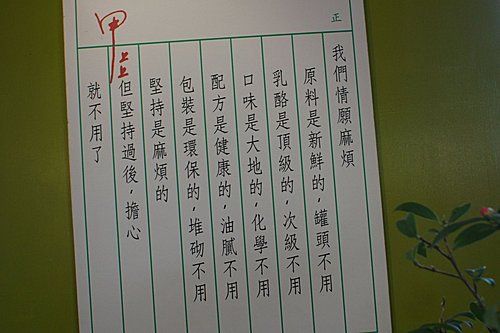 正
我們情願麻煩
原料是新鮮的，罐頭不用
乳酪是頂級的，次級不用
口味是大地的，化學不用
配方是健康的，油膩不用
包裝是環保的，堆砌不用
堅持是麻煩的
但堅持過後，擔心
就不用了
甲上上